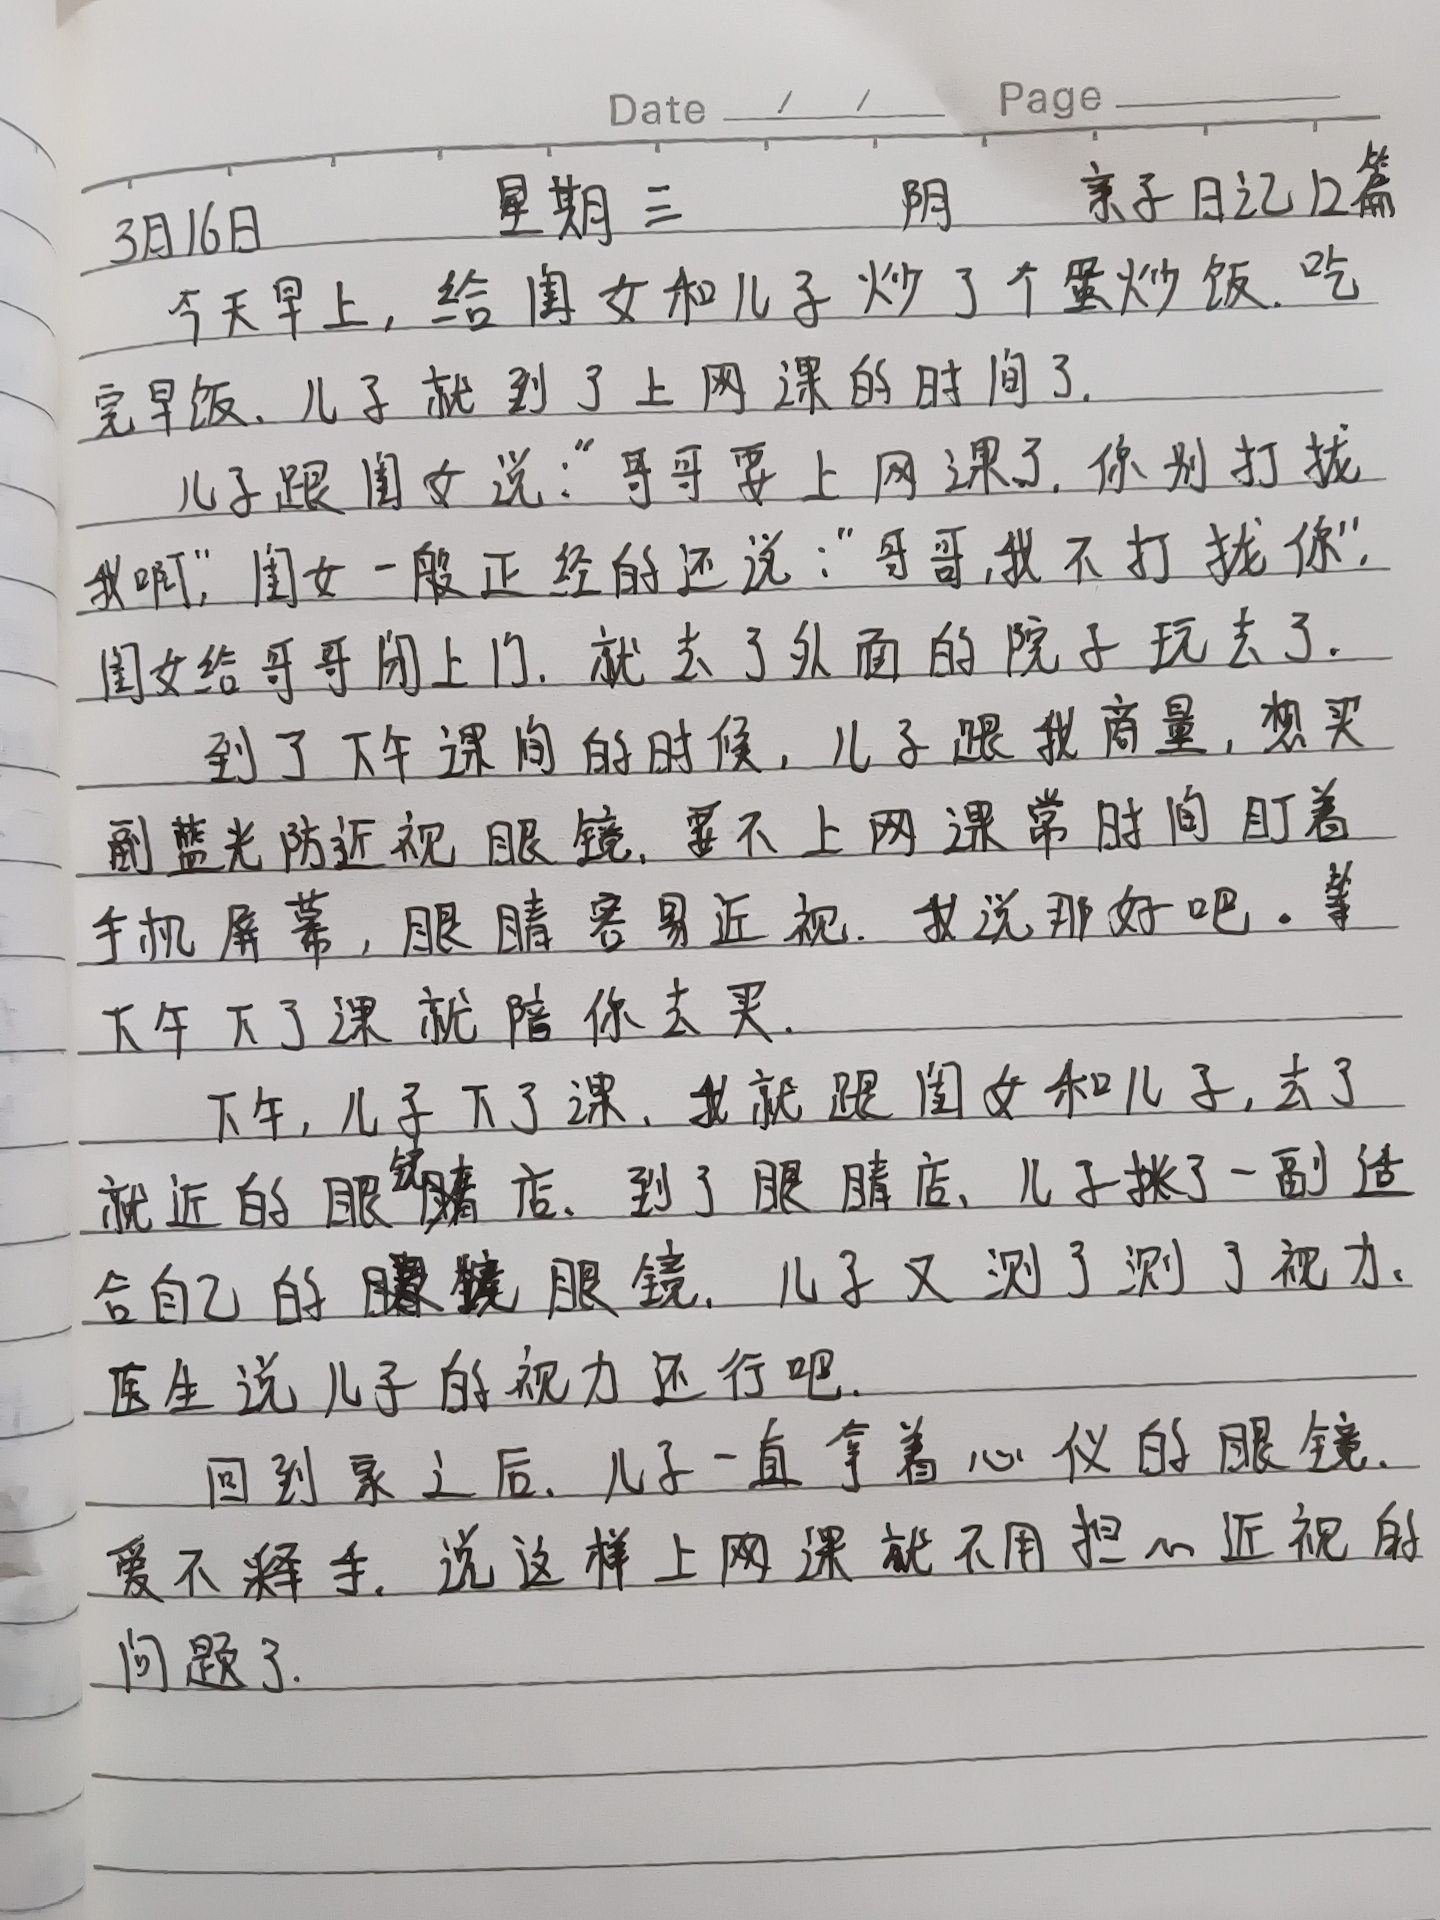 Date / / Page
3月16日 星期三 阴 亲子日记12篇
今天早上，给闺女和儿子炒了个蛋炒饭.吃
完早饭、儿子就到了上网课的时间了.
儿子跟闺女说："哥哥要上网课了.你别打拢
我啊",闺女一般正经的还说："哥哥,我不打拢你".
闺女给哥哥闭上门.就去了外面的院子玩去了.
到了下午课间的时候,儿子跟我商量,想买
副蓝光防近视眼镜.要不上网课常时间盯着
手机屏幕,眼睛容易近视.我说那好吧.等
下午下了课就陪你去买.
下午,儿子下了课、我就跟闺女和儿子,去了
就近的眼镜店.到了眼睛店、儿子挑了一副适
合自己的眼镜.儿子又测了测了视力、
医生说儿子的视力还行吧.
回到家之后.儿子一直拿着心仪的眼镜.
爱不释手.说这样上网课就不用担心近视的
问题了.